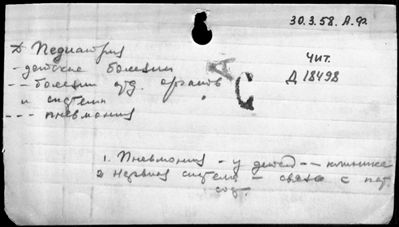 30.3.58. А.Ф
Д Педиатрия
- детские болезни
--- болезни отд. органов
и системы
--- пневмония
А
С
ЧИТ.
Д 18498
1. Пневмония - у детей -- клиника
2 Нервная система - связь с пат
сос.